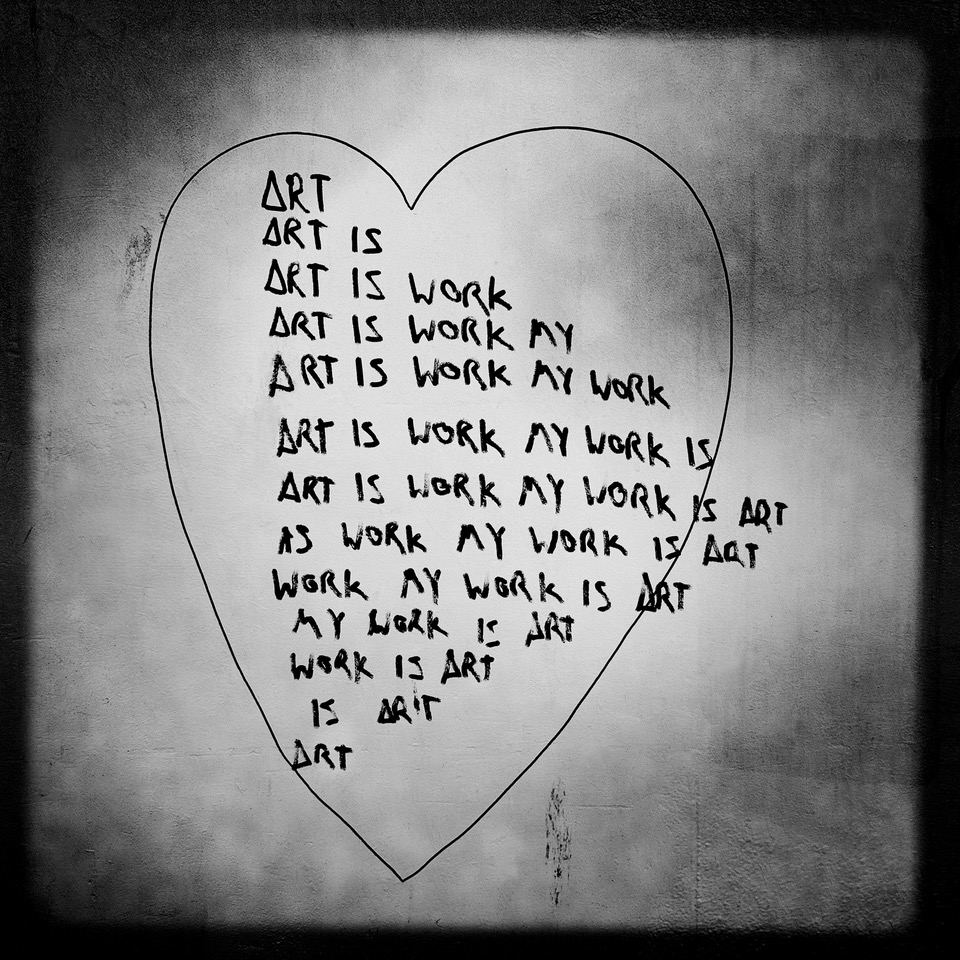 ART
ART IS
ART IS WORK
ART IS WORK MY
ART IS WORK MY WORK
ART IS WORK MY WORK IS
ART IS WORK MY WORK IS ART
AS WORK MY WORK IS ART
WORK MY WORK IS ART
MY WORK IS ART
WORK IS ART
IS ART
ART